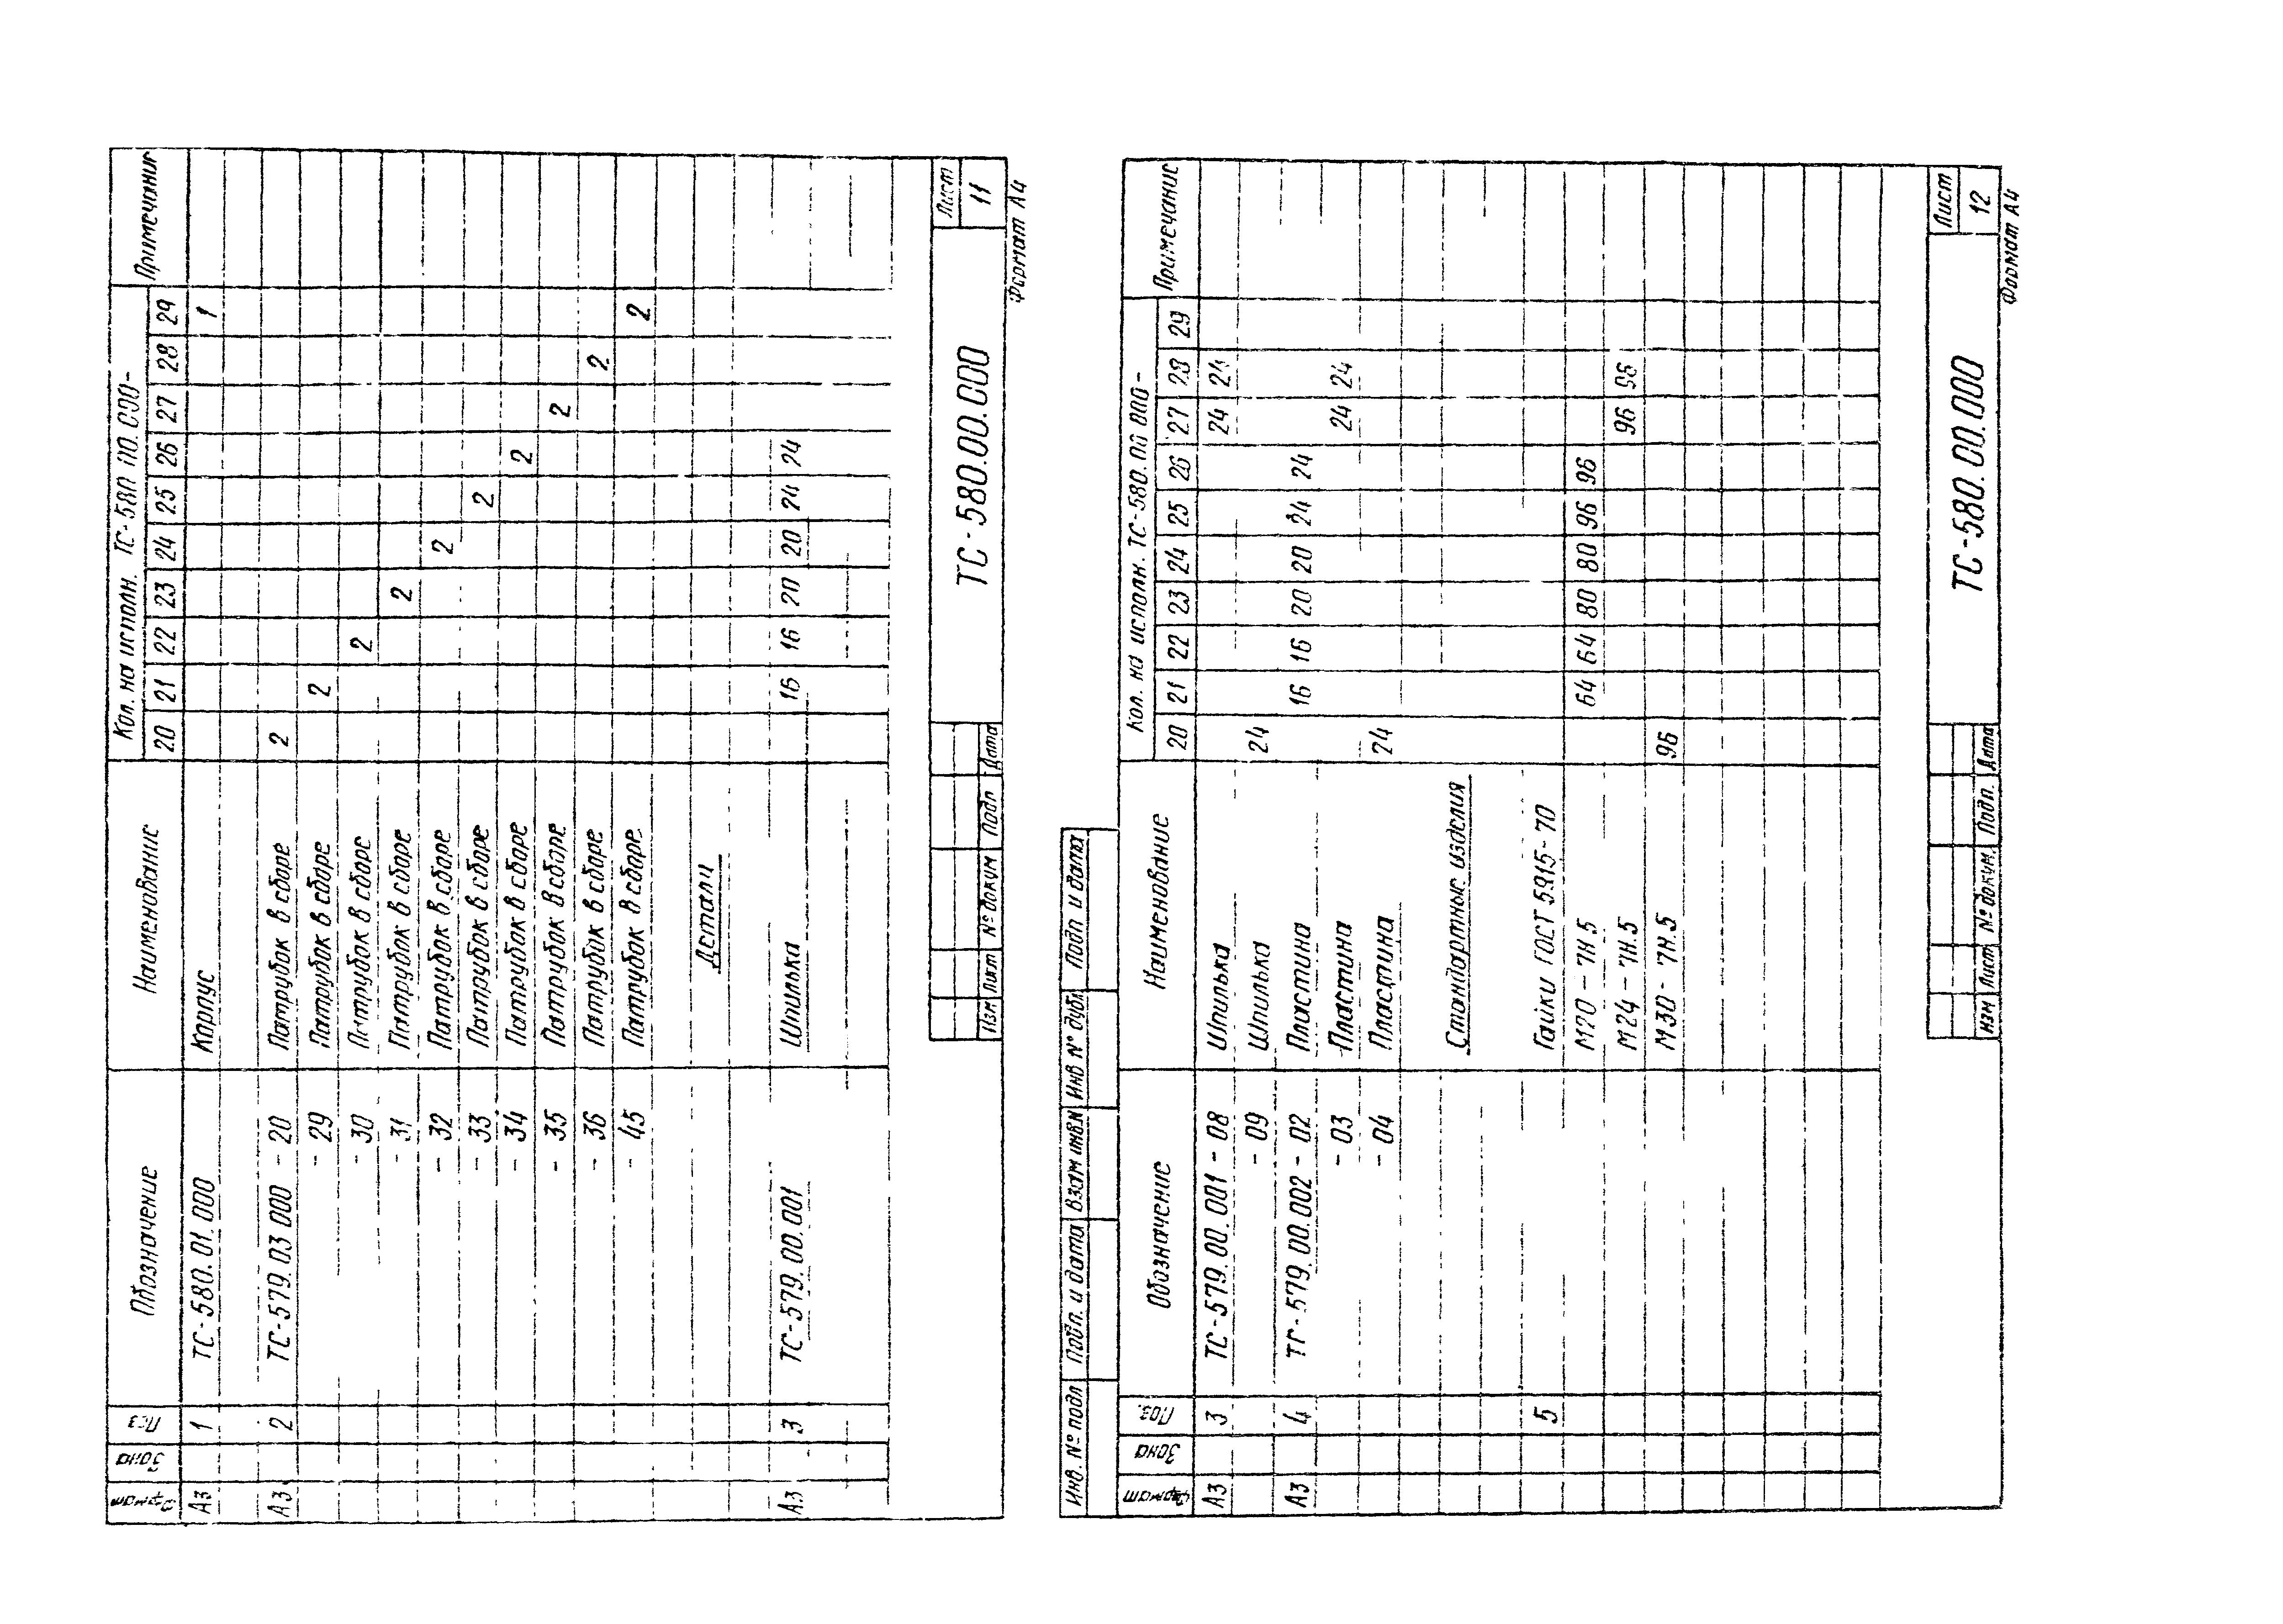 Формат Зона Поз Обозначение Наименование Кол. на исполн. ТС-580.00.000- Примечание
20 21 22 23 24 25 26 27 28 29
А3 1 ТС-580.01.000 Корпус 1
А3 2 ТС-579.03.000 - 20 Патрубок в сборе 2
- 29 Патрубок в сборе 2
- 30 Патрубок в сборе 2
- 31 Патрубок в сборе 2
- 32 Патрубок в сборе 2
- 33 Патрубок в сборе 2
- 34 Патрубок в сборе 2
- 35 Патрубок в сборе 2
- 36 Патрубок в сборе 2
- 45 Патрубок в сборе 2
Детали
А3 3 ТС-579.00.001 Шпилька 16 16 20 20 24 24
Изм Лист № докум Подп Дата
ТС-580.00.000
Лист
11
Формат А4
Инв. № подл Подп. и дата Взам инв.№ Инв № дубл Подп и дата
Формат Зона Поз. Обозначение Наименование Кол. на исполн. ТС-580.00.000- Примечание
20 21 22 23 24 25 26 27 28 29
А3 3 ТС-579.00.001 - 08 Шпилька 24 24
- 09 Шпилька 24
А3 4 ТС-579.00.002 - 02 Пластина 16 16 20 20 24 24
- 03 Пластина 24 24
- 04 Пластина 24
Стандартные изделия
5 Гайки ГОСТ 5915-70
М20 - 7Н.5 64 64 80 80 96 96
М24 - 7Н.5 96 96
М30 - 7Н.5 96
Изм Лист № докум. Подп. Дата
ТС-580.00.000
Лист
12
Формат А4